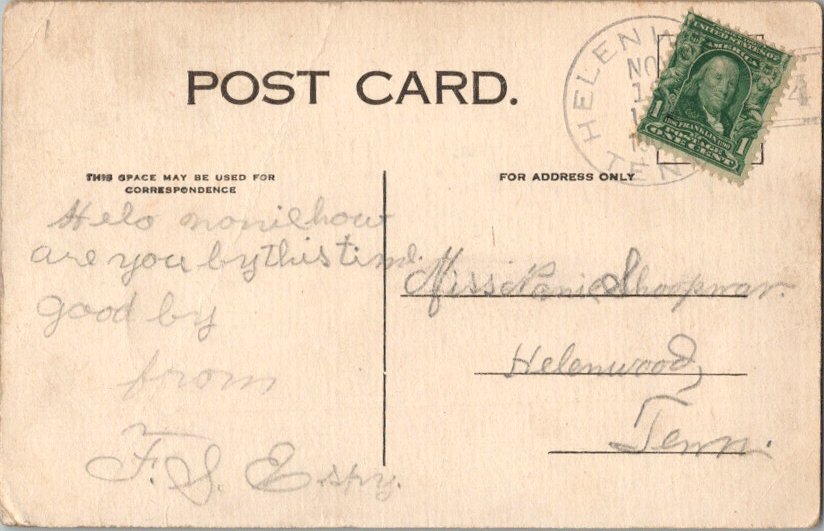 POST CARD.
THIS SPACE MAY BE USED FOR
CORRESPONDENCE
FOR ADDRESS ONLY
HELENW
NO
TEN
4
UNITED STATES OF
AMERICA
FRANKLIN
1 ONE CENT 1
Helo nonie how
are you by this time.
good by
from
F. S. Espy.
Miss Nonie
Helenwood,
Tenn.